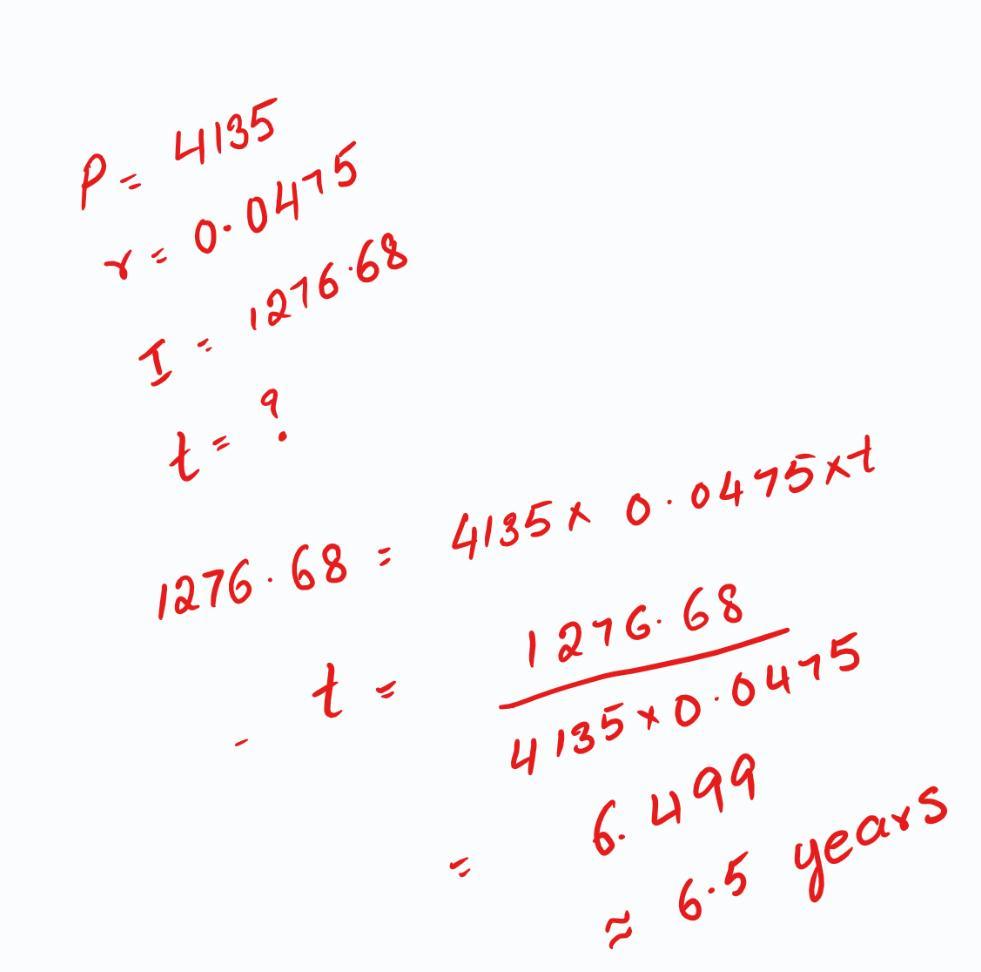 P = 4135
r = 0.0475
I = 1276.68
t = ?
1276.68 = 4135 x 0.0475 x t
t = 1276.68
4135 x 0.0475
= 6.499
≈ 6.5 years